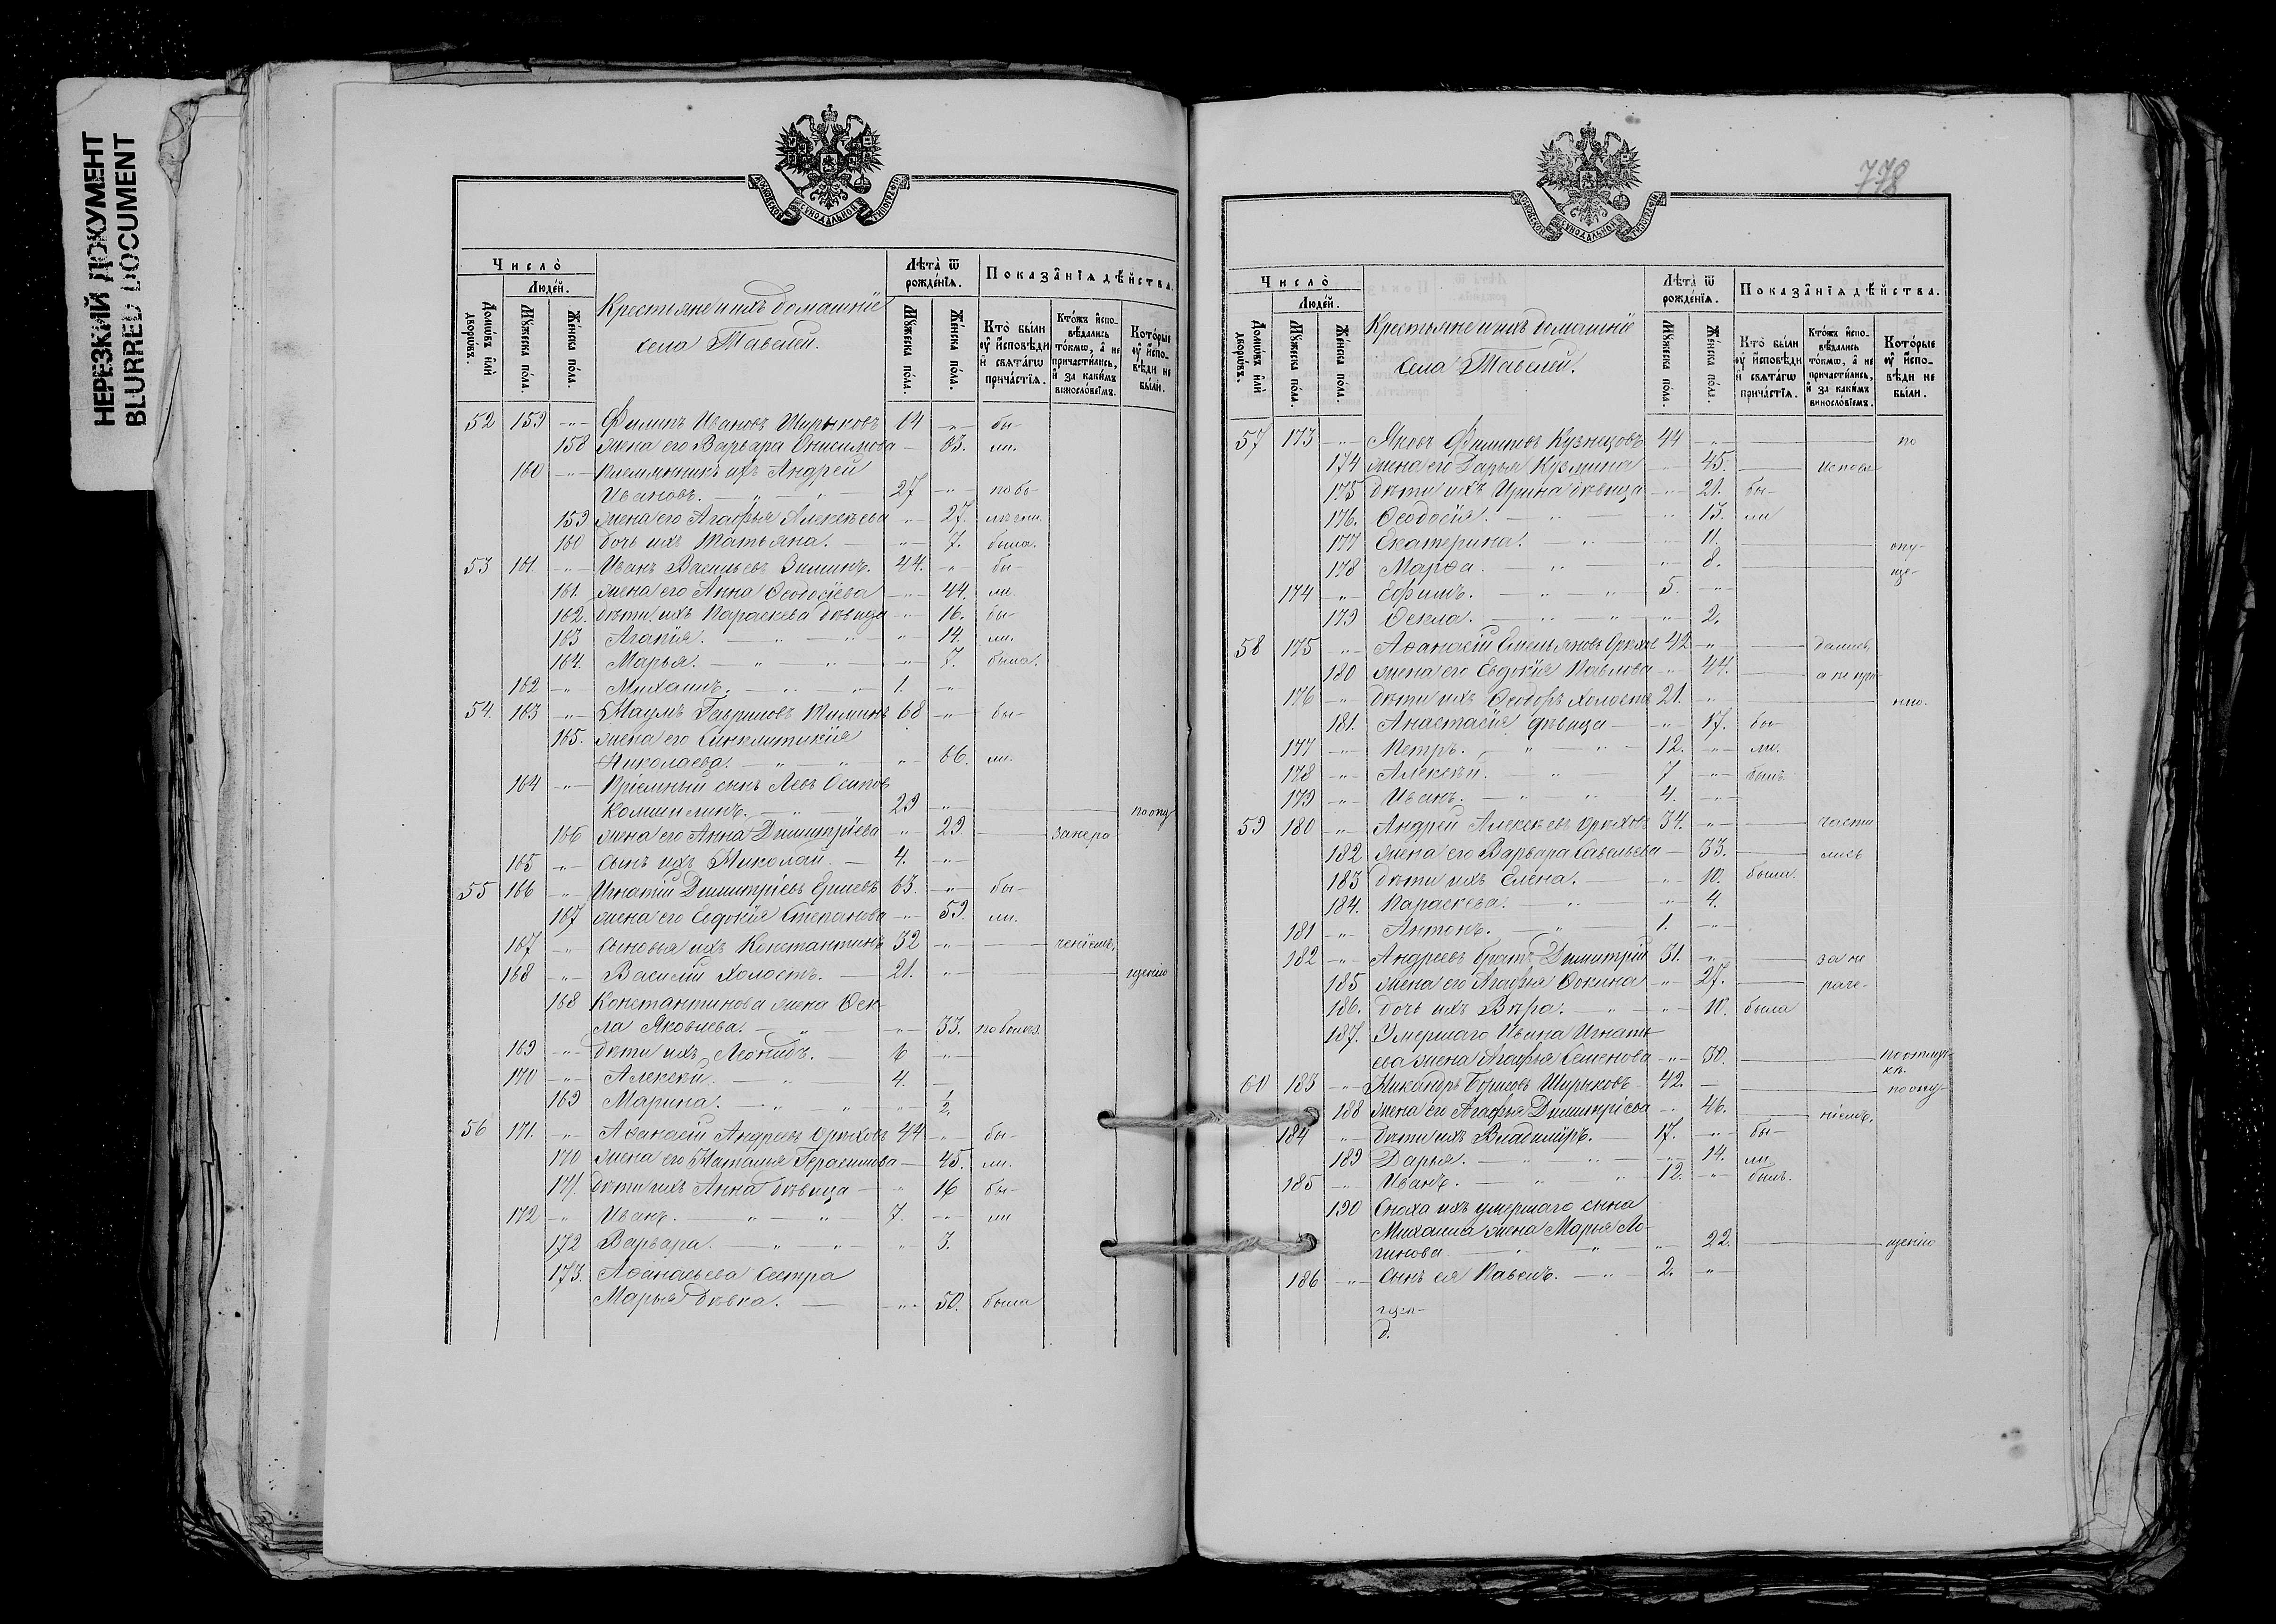 НЕРЕЗКИЙ ДОКУМЕНТ
BLURRED DOCUMENT
МОСКОВСКОЙ СѴНОДАЛЬНОЙ ТИПОГРАФІИ
Число̀
Людей.
Домѡвъ или дворѡвъ.
Мꙋжеска пола.
Женска пола.
Крестьяне и ихъ домашніе
села Тавелей.
Лѣта̀ ѿ рожденїѧ.
Мꙋжеска пола.
Женска пола.
Показанїѧ дѣйства.
Кто̀ были оу҆ и҆сповѣди и҆ свѧтагѡ причастїѧ.
Ктожъ и҆спо-вѣдались токмѡ, а҆ не причастились, и҆ за какимъ винословїемъ.
Которые оу҆ и҆спо-вѣди не были.
52 159 -"- Филипъ Ивановъ Шурыковъ 64 -"- бы-
158 жена его Варвара Онисимова — 63. ли.
160 -"- племянникъ ихъ Андрей
Ивановъ. — " — " — 27 -"- по бо-
159 жена его Агафья Алексѣева -"- 27. лѣзни.
160 дочь ихъ Татьяна. — -"- 7. была.
53 161. -"- Иванъ Васильевъ Зиминъ. 44. -"- бы-
161. жена его Анна Ѳеодосіева -"- 44. ли.
162. дѣти ихъ Параскева дѣвица -"- 16. бы-
163 Агапія. — " — " — " 14. ли.
164. Марья. — " — " — -"- 7. была.
162 -"- Михаилъ. — " — " 1. -"-
54. 163 -"- Наумъ Гавриловъ 68 -"- бы-
165. жена его Синклитикія
Николаева. — " — " -"- 66. ли.
164 -"- Пріемный сынъ Левъ Осиповъ
29 -"- — по опу
166 жена его Анна Димитріева -"- 29. — за нера-
165 -"- сынъ ихъ Николай. — 4. -"-
55 166 -"- Игнатій Димитріевъ 63. -"- бы-
167 жена его Евдокія Степанова -"- 59. ли.
167 -"- сыновья ихъ Константинъ 32 -"- — ченіемъ.
168 -"- Василій холостъ. — 21. -"- — щенію
168 Константинова жена Ѳек-
ла Яковлева. — " — -"- 33. по болѣз.
169 -"- дѣти ихъ Леонидъ. — 6 -"-
170 -"- Алексѣй. — " — 4. —
169 Марина. — " — " -"- 1/2.
56 171. -"- Аѳанасій Андреевъ Орѣховъ 44 -"- бы-
170 жена его Наталья Герасимова — 45. ли.
171. дѣти ихъ Анна дѣвица — " 16 бы-
172 -"- Иванъ. — " — " 7. -"- ли
172 Варвара. — " — " " 3.
173. Аѳанасьева сестра
Марья дѣвка. — -"- 50. была
778
МОСКОВСКОЙ СѴНОДАЛЬНОЙ ТИПОГРАФІИ
Число̀
Людей.
Домѡвъ или дворѡвъ.
Мꙋжеска пола.
Женска пола.
Крестьяне и ихъ домашніе
села Тавелей.
Лѣта̀ ѿ рожденїѧ.
Мꙋжеска пола.
Женска пола.
Показанїѧ дѣйства.
Кто̀ были оу҆ и҆сповѣди и҆ свѧтагѡ причастїѧ.
Ктожъ и҆спо-вѣдались токмѡ, а҆ не причастились, и҆ за какимъ винословїемъ.
Которые оу҆ и҆спо-вѣди не были.
57 173 -"- Яковъ Филиповъ Кузнецовъ 44 -"- — по
174 жена его Дарья Кузмина -"- 45. — исповѣ
175 дѣти ихъ Ирина дѣвица -"- 21. бы-
176. Ѳеодосія. — " — -"- 13. ли
177 Екатерина. — " — -"- 11. — опу-
178 Марѳа. — " — -"- 8. — ще-
174 -"- Ефимъ. — " — " — 5. -"-
179 Ѳекла. — " — " -"- 2.
58 175 -"- Аѳанасій Емельяновъ Орѣховъ 42 -"- — дались
180 жена его Евдокія Павлова -"- 44. — а не при-
176 -"- дѣти ихъ Ѳеодоръ холостъ 21. -"- — нію.
181. Анастасія дѣвица — -"- 17. бы-
177 -"- Петръ. — " — " — 12. -"- ли.
178 -"- Алексѣй. — " — 7 -"- былъ
179 -"- Иванъ. — " — " 4. -"-
59 180 -"- Андрей Алексѣевъ Орѣховъ 34. -"- — части
182 жена его Варвара Савельева — 33. — лись
183 дѣти ихъ Елена. — -"- 10. была.
184. Параскева. — " — " 4.
181 -"- Антонъ. — " — 1. -"-
182 -"- Андреевъ братъ Димитрій 31. -"- — за не
185 жена его Агафья Ѳокина -"- 27. — раче-
186. дочь ихъ Вѣра. — " -"- 10. была
187. Умершаго Ивана Игнать-
ева жена Агафья Семенова -"- 30. — по отлуч-
кѣ.
60 183 -"- Никандръ Борисовъ Шурыковъ 42. — по опу-
188 жена его Агафья Димитріева -"- 46. — ніемъ.
184 -"- дѣти ихъ Владиміръ. — 17. -"- бы-
189 Дарья. — " — " -"- 14. ли
185 -"- Иванъ. — " — " 12. -"- былъ.
190 Сноха ихъ умершаго сына
Михаила жена Марья Ло-
гинова — " — " -"- 22. — щенію
186 -"- сынъ ея Павелъ. — " — 2. -"-